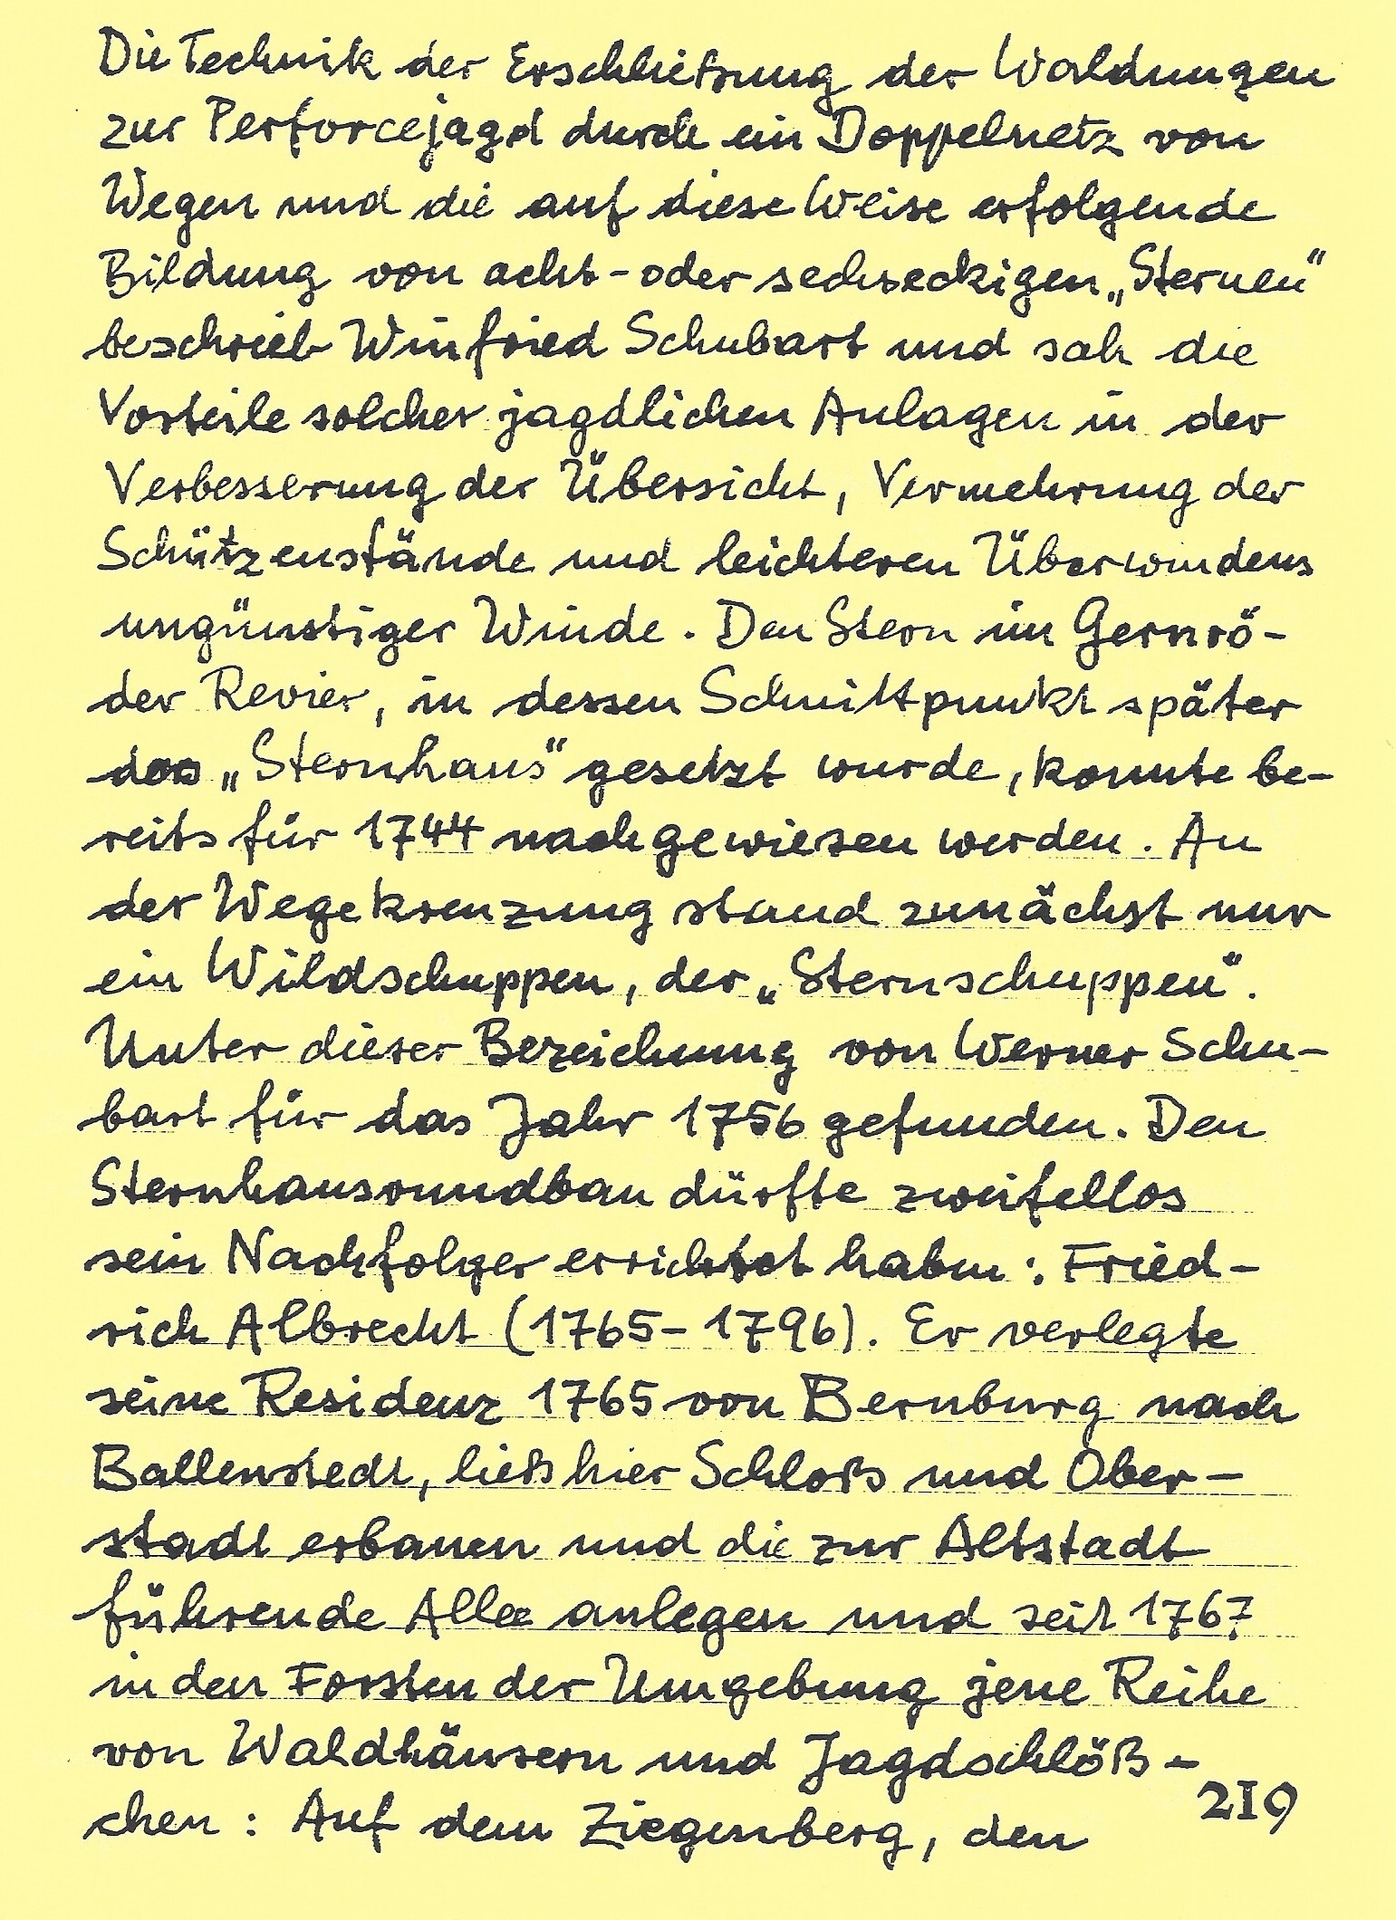 Die Technik der Erschließung der Waldungen
zur Perforcejagd durch ein Doppelnetz von
Wegen und die auf diese Weise erfolgende
Bildung von acht- oder sechseckigen „Sternen“
beschrieb Winfried Schubart und sah die
Vorteile solcher jagdlichen Anlagen in der
Verbesserung der Übersicht, Vermehrung der
Schützenstände und leichteren Überwindens
ungünstiger Winde. Den Stern im Gernrö-
der Revier, in dessen Schnittpunkt später
das „Sternhaus“ gesetzt wurde, konnte be-
reits für 1744 nachgewiesen werden. An
der Wegekreuzung stand zunächst nur
ein Wildschuppen, der „Sternschuppen“.
Unter dieser Bezeichnung von Werner Schu-
bart für das Jahr 1756 gefunden. Den
Sternhausrundbau dürfte zweifellos
sein Nachfolger errichtet haben: Fried-
rich Albrecht (1765-1796). Er verlegte
seine Residenz 1765 von Bernburg nach
Ballenstedt, ließ hier Schloß und Ober-
stadt erbauen und die zur Altstadt
führende Allee anlegen und seit 1767
in den Forsten der Umgebung jene Reihe
von Waldhäusern und Jagdschlöß-
chen: Auf dem Ziegenberg, den
219